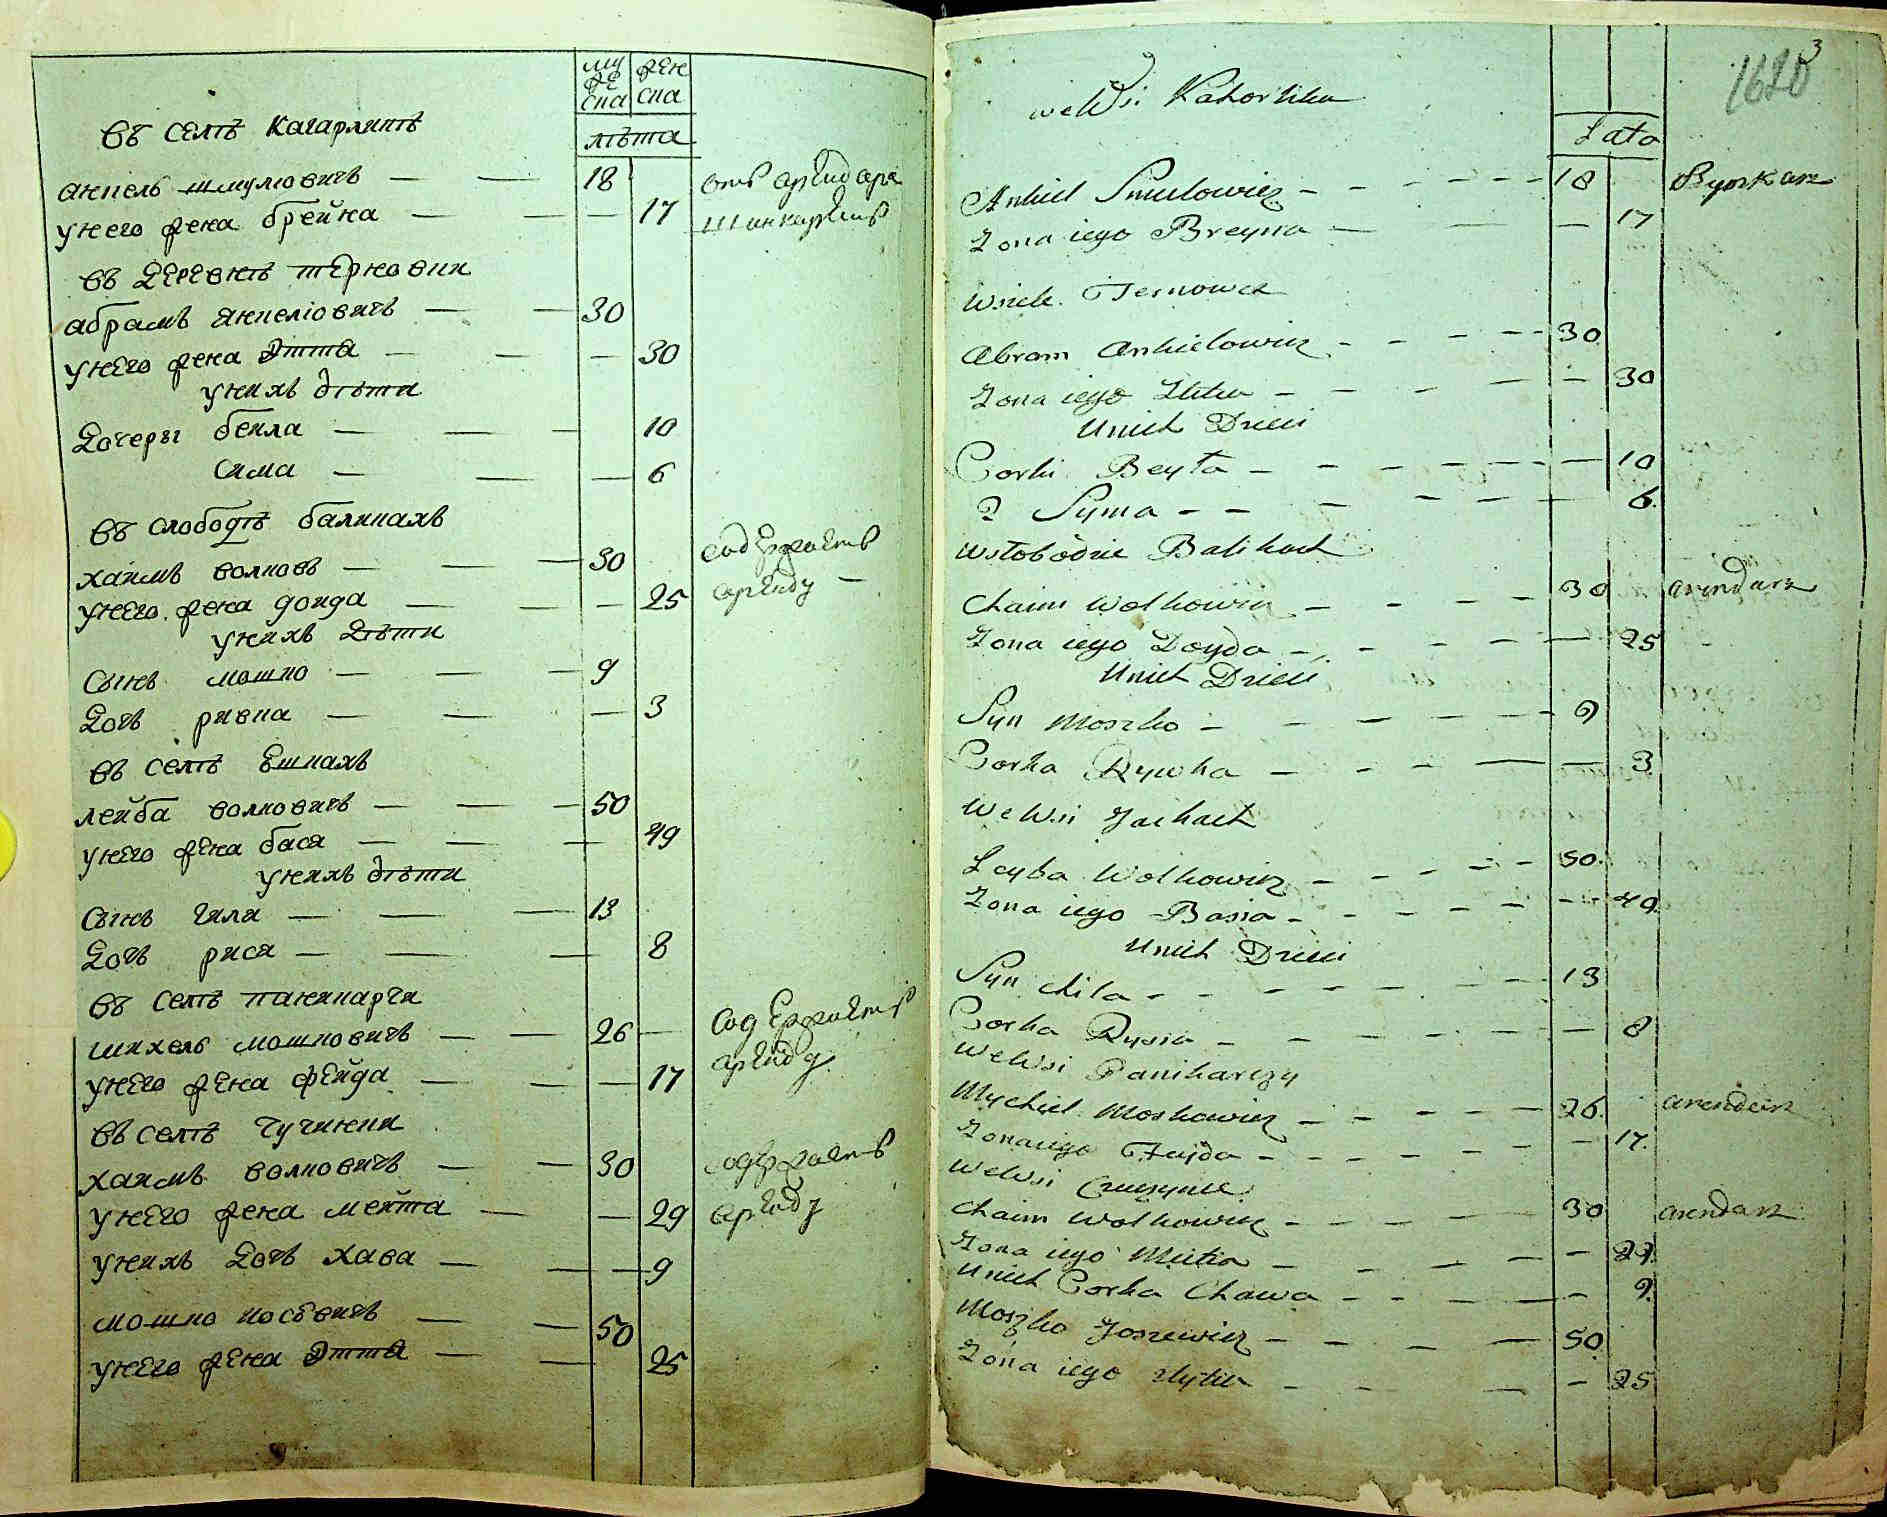 муђ
ска
жен
ска
лѣта
въ селѣ кагарликѣ
анкель шмулювичъ — — 18
от арендара
унего жена брейна — — — 17
шинкуетъ
въ деревнѣ терновки
абрамъ анкеліовичъ — — 30
унего жена Этта — — — 30
унихъ дѣти
дочеры бейла — — — 10
сима — — — 6
въ слободѣ балиkахъ
хаимъ волковъ — — — 30
содержаетъ
унего жена дойда — — — 25
аренду —
унихъ дѣти
сынъ мошко — — — 9
дочь ривка — — — 3
въ селѣ Ешкахъ
лейба волковичъ — — — 50
унего жена бася — — — 49
унихъ дѣти
сынъ гила — — — 13
дочь рися — — — 8
въ селѣ паникарчи
михель мошковичъ — — 26
содержаетъ
унего жена фейда — — — 17
аренду
въ селѣ чучинки
хаимъ волковичъ — — 30
содержаетъ
унего жена мейта — — 29
аренду
унихъ дочь хава — — — 9
мошко иосевичъ — — 50
унего жена Этта — — 25
3
1620
weWsi Kahorlika
Lata
Ankiel Smulowicz - - - - - 18
Żona iego Breyna — — — 17
Wsiele Ternowce
Abram Ankielowicz - - - - 30
Żona iego Ittta - - - - 30
Unich Dzieci
Corki Beyła - - - - - 10
2 Syma - - - - - 6.
Wsłobodzie Balikach
Chaim Wolkowicz - - - - 30
arendarz
Żona iego Doyda - - - - 25
Unich Dzieci
Syn Moszko - - - - - 9
Corka Rywka - - - — — 3
We Wsi Jackach
Leyba Wolkowicz - - - - 50.
Żona iego Basia - - - - 49.
Unich Dzieci
Syn Chila - - - - - 13
Corka Rysia - - - - - 8
WeWsi Panikarczy
Mychiel Moskowicz - - - - 26.
arendarz
Żona iego Fejda - - - - 17.
WeWsi Czuczynce
Chaim Wolkowicz - - - - 30
arendarz
Żona iego Meita - - - - 29.
Unich Corka Chawa - - - - 9.
Moszko Joszewicz - - - - 50
Żona iego - - - - 25